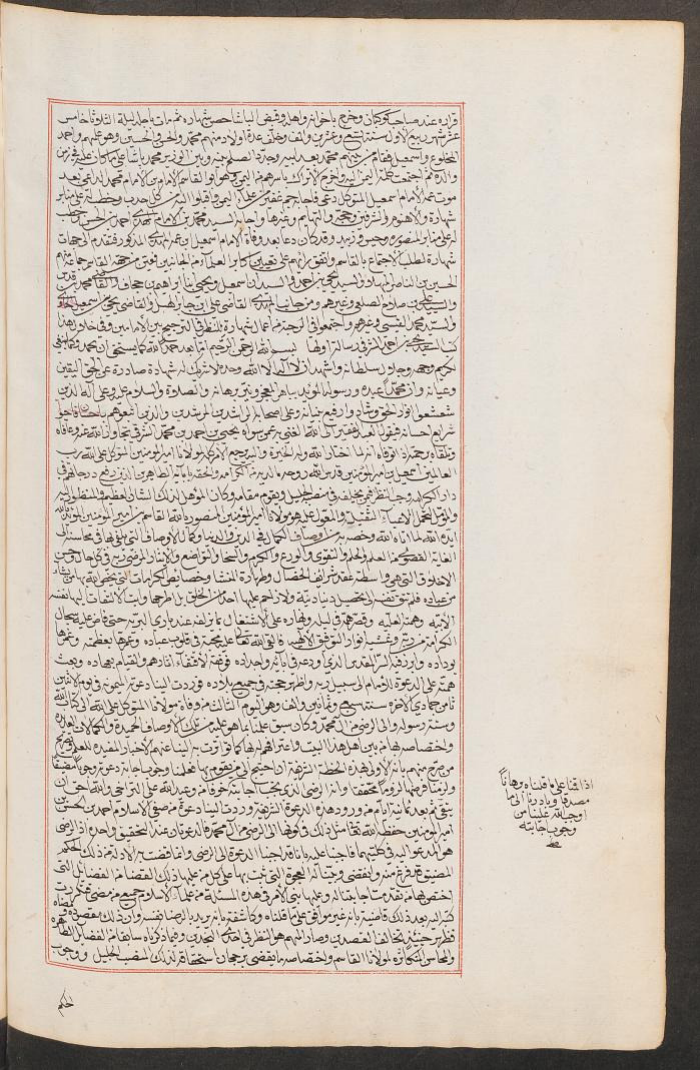 قراره عند صاحب كوكبان وخرج باخوانه واهله وقبض الباشا حصن شهاره ثم مات باجله ليلة الثلوثا خامس
عشر شهر ربيع الاول سنة تسع وعشرين والف وخلف عدة اولاد منهم محمد والحسن والحسين وهو عليهم واحمد
المخلوع واسمعيل فقام منهم محمد بعد ابيه وجدد الصلح بينه وبين الوزير محمد باشا على ما كان عليه في زمن
والده ثم اجتمعت عليه اليمن الى واخرج الاتراك باسرهم من اليمن وهو ابو القاسم الامام بن الامام محمد الداعي بعد
موت عمه الامام اسمعيل المتوكل دعى فاجابه جم غفير من علماء اليمن واقبلوا اليه من كل حدب وخطب له على منابر
شهارة والاهنوم والشرفين وحجة والتهايم وغيرها واجابه السيد محمد بن الامام احمد بن الحسن وخطب
له على منابر المنصوره وحبس وزبيد وقد كان دعا بعد وفاة الامام اسمعيل بن عمه المذكور فتقدم الى جهات
شهارة لطلب الاجتماع بالقاسم واتفق رائهم على تعيين اكابر العلماء من الجانبين فعين من جهة القاسم جماعة منهم
الحسين بن الناصر المهلا والسيد يحيى بن احمد والسيد اسمعيل ويحيى بن ابراهيم بن جحاف والقاسم
والسيد علي بن صلاح الصلعي وغيرهم ومن جانب القاضي علي بن جابر الهبل والقاضي يحيى بن اسمعيل
والسيد محمد وغيرهم واجتمعوا في الرحبة من اعمال شهارة للنظر في الترجيح بين الامامين وفي خلال هذا
كتب السيد يحيى بن احمد الشرفي رسالة اولها بسم الله الرحمن الرحيم اما بعد حمد الله كما يستحق ان يحمد وكما ينبغي
لكريم وجهه وجلال سلطانه واشهد ان لا اله الا الله وحده لا شريك له شهادة صادرة عن الحق اليقين
وعيانه وان محمدا عبده ورسوله المؤيد بباهر المعجز ونير برهانه والصلوة والسلام عليه وعلى آله الذين
شعشعوا انوار الحق وشادوا رفيع بنيانه وعلى اصحابه الراشدين المرشدين والذين اتبعوهم باحسان
احسانه فيقول العبد الفقير الى الله الغني به عمن سواه يحيى بن احمد بن محمد الشرفي تجاوز الله عنه وعافاه
وتلقاه برحمته اذا توفاه انه لما اختار الله وله الخيرة واليه يرجع الامر كله مولانا امير المومنين المتوكل على الله رب
العالمين اسمعيل بن امير المومنين قدس الله روحه والحقه بابائه الطاهرين الذين رفع درجاتهم في
دار اكرامه وجب النظر فيمن يخلفه في منصبه الجليل ويقوم مقامه وكان المؤهل لذلك الشان العظيم والمنظور اليه
والمؤمل لتحمل الاعباء الثقيلة والمعول عليه هو مولانا امير المومنين المنصور بالله القاسم بن امير المومنين المؤيد بالله
ايده الله لما اتاه الله وخصه به من اوصاف الكمال في الدين والدنيا وكمال الاوصاف التي بلغ بها في محاسنه الى
الغاية القصوى هذا العلم والحلم والتقوى والورع والكرم والسخا والتواضع والايثار لمرضى ربه في كل حال وحسن
الاخلاق التي هي واسطة عقد شرايف الخصال وطهارة المنشا وخصايص الكرامات التي يختص الله بها من يشاء
من عباده فلم تتق نفسه الى تحصيل دنيا دنية ولا زاحم عليها احدا من الخلق بل طرحها وابت الالتفات اليها نفسه
الابيه وهمته العليه وقصر همه في ليله ونهاره على الاشتغال بما يزلفه عند باري البريه حتى فاض عليه سجال
الكرامة من ربه انوار التوفيق الالهيه فالقى الله تعالى محبته في قلوب عباده وغمرها بعظمته وعمرها
بوداده واورد فيه السر المقدس الذي اودعه في ابائه واجداده فوفقه لاقتفاء اثارهم والقيام بجهاده وبعث
همته على الدعوة للانام الى سبيل ربه واظهر حجته في جميع بلاده فوردت الينا دعوته الميمونه في يوم الاثنين
ثامن جمادى الاخره سنة سبع وثمانين والف وهو اليوم الثالث من وفاة مولانا المتوكل على الله الى كتاب الله
وسنة رسوله والى الرضى من آل محمد وكان سبق علمنا بما هو عليه من تلك الاوصاف الحميدة والكمالات العديده
واختصاصه بها من بين اهل هذا البيت واعترافهم له بها كما تواترت به الينا عنهم الاخبار المفيده للعلم
من منهم بانه الاولى بهذه الخطة الشريفة ان احتيج الى من يقوم بها فعلمنا وجوب اجابة دعوته وجوبا مضيقا
ولزمنا فرضها لزوما محققا وانه الرضى الذي يجب اجابته خوفا من وعيد الله على التراخي والله احق ان
يتقى ثم بعد ثمانية ايام من ورود هذه الدعوة الشريفة وردت الينا دعوة من صفي الاسلام احمد بن الحسن بن
امير المومنين حفظه الله تعالى مثل ذلك في كونها الى الرضى من آل محمد فالدعوتان عند التحقيق واحدة اذ الرضى
هو المدعو اليه في كلتيهما فاجبنا عليه بانا قد اجبنا الدعوة الى الرضى وانما قضت به الادلة عند ذلك الحكم
المضيق قد فرغ منه وانقضى وبينا له الحجة التي نثبت بها على كل من عليها ذلك القضا من الفضايل التي
اختص بها من تقدمت اجابتنا له وعليها بني الامر في هذه المسئلة من علماء الاسلام جميع من مضى فتكررت
كتب اليه بعد ذلك قاضية بانه غير موافق على ما قلناه وكاشفة بانه يريد بالرضا نفسه وان ذلك مقصوده
فظهر حينئذ تخالف المقصدين وصار المهم هو النظر في احدى النجدين وفيما ذكرناه سابقا من الفضايل الظاهره
والمحاسن المتكاثره لمولانا القاسم واختصاصه ما يقضى برجحان استحقاقه لذلك المنصب الجليل ووجوب
الحكم
اذا اقمنا على ما قلناه برهانا
مصدقا وبادرنا الى ما
اوجب الله علينا من
وجوب اجابته
صح